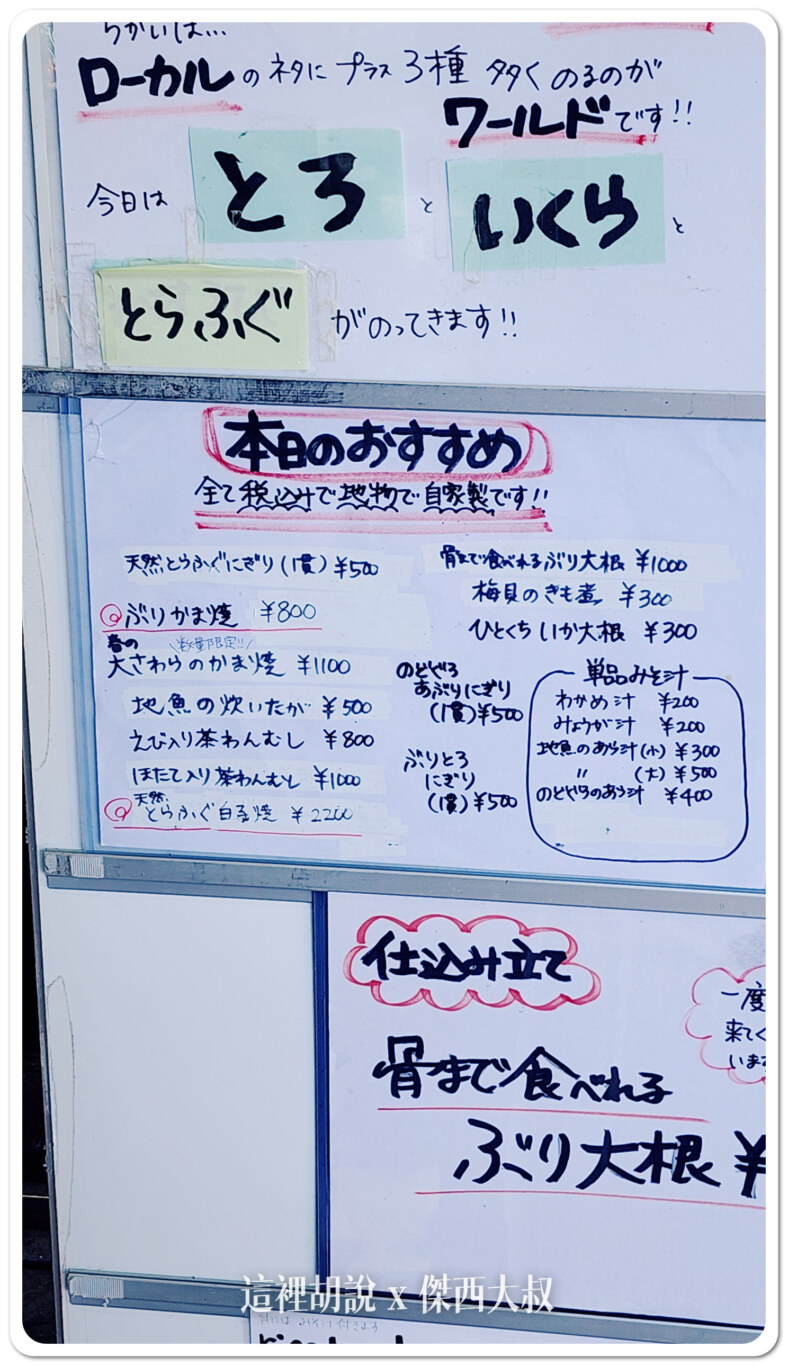 らかいは…
ローカルのネタにプラス3種多くのるのが
ワールドです!!
今日は とろ と いくら と
とらふぐ がのってきます!!
本日のおすすめ
全て税込みで地物で自家製です!!
天然とらふぐにぎり(1貫) ¥500
ぶりかま焼 ¥800
春の 数量限定!!
大さわらのかま焼 ¥1100
地魚の炊いたが ¥500
えび入り茶わんむし ¥800
ほたて入り茶わんむし ¥1000
天然
とらふぐ白子焼 ¥2200
骨まで食べれるぶり大根 ¥1000
梅貝のきも煮 ¥300
ひとくちいか大根 ¥300
のどぐろ
あぶりにぎり
(1貫)¥500
ぶりとろ
にぎり
(1貫)¥500
単品みそ汁
わかめ汁 ¥200
みょうが汁 ¥200
地魚のあら汁(小) ¥300
〃 (大) ¥500
のどぐろのあら汁 ¥400
仕込み立て
骨まで食べれる
ぶり大根 ¥
一度
来てく
いま
這裡胡說 x 傑西大叔